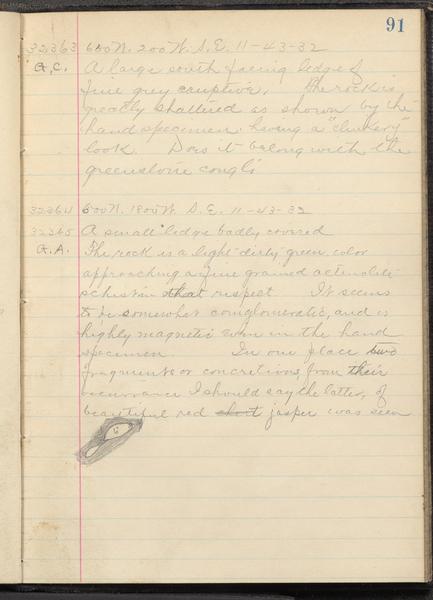 91
32363 600N. 200W. S.E. 11-43-32
A.C. A large south facing ledge of
fine grey eruptive. The rock is
greatly shattered as shown by the
hand specimen having a "clinkery"
look. Does it belong with the
greenstone congl.
32364 500N. 1800W. S.E. 11-43-32
32365 A small ledge badly covered
A.A. The rock is a light "dirty" green color
approaching a fine grained actinolite
schist in that respect. It seems
to be somewhat conglomeratic, and is
highly magnetic even in the hand
specimen In one place two
fragments or concretions, from their
occurrance I should say the latter, of
beautiful red chert jasper was seen